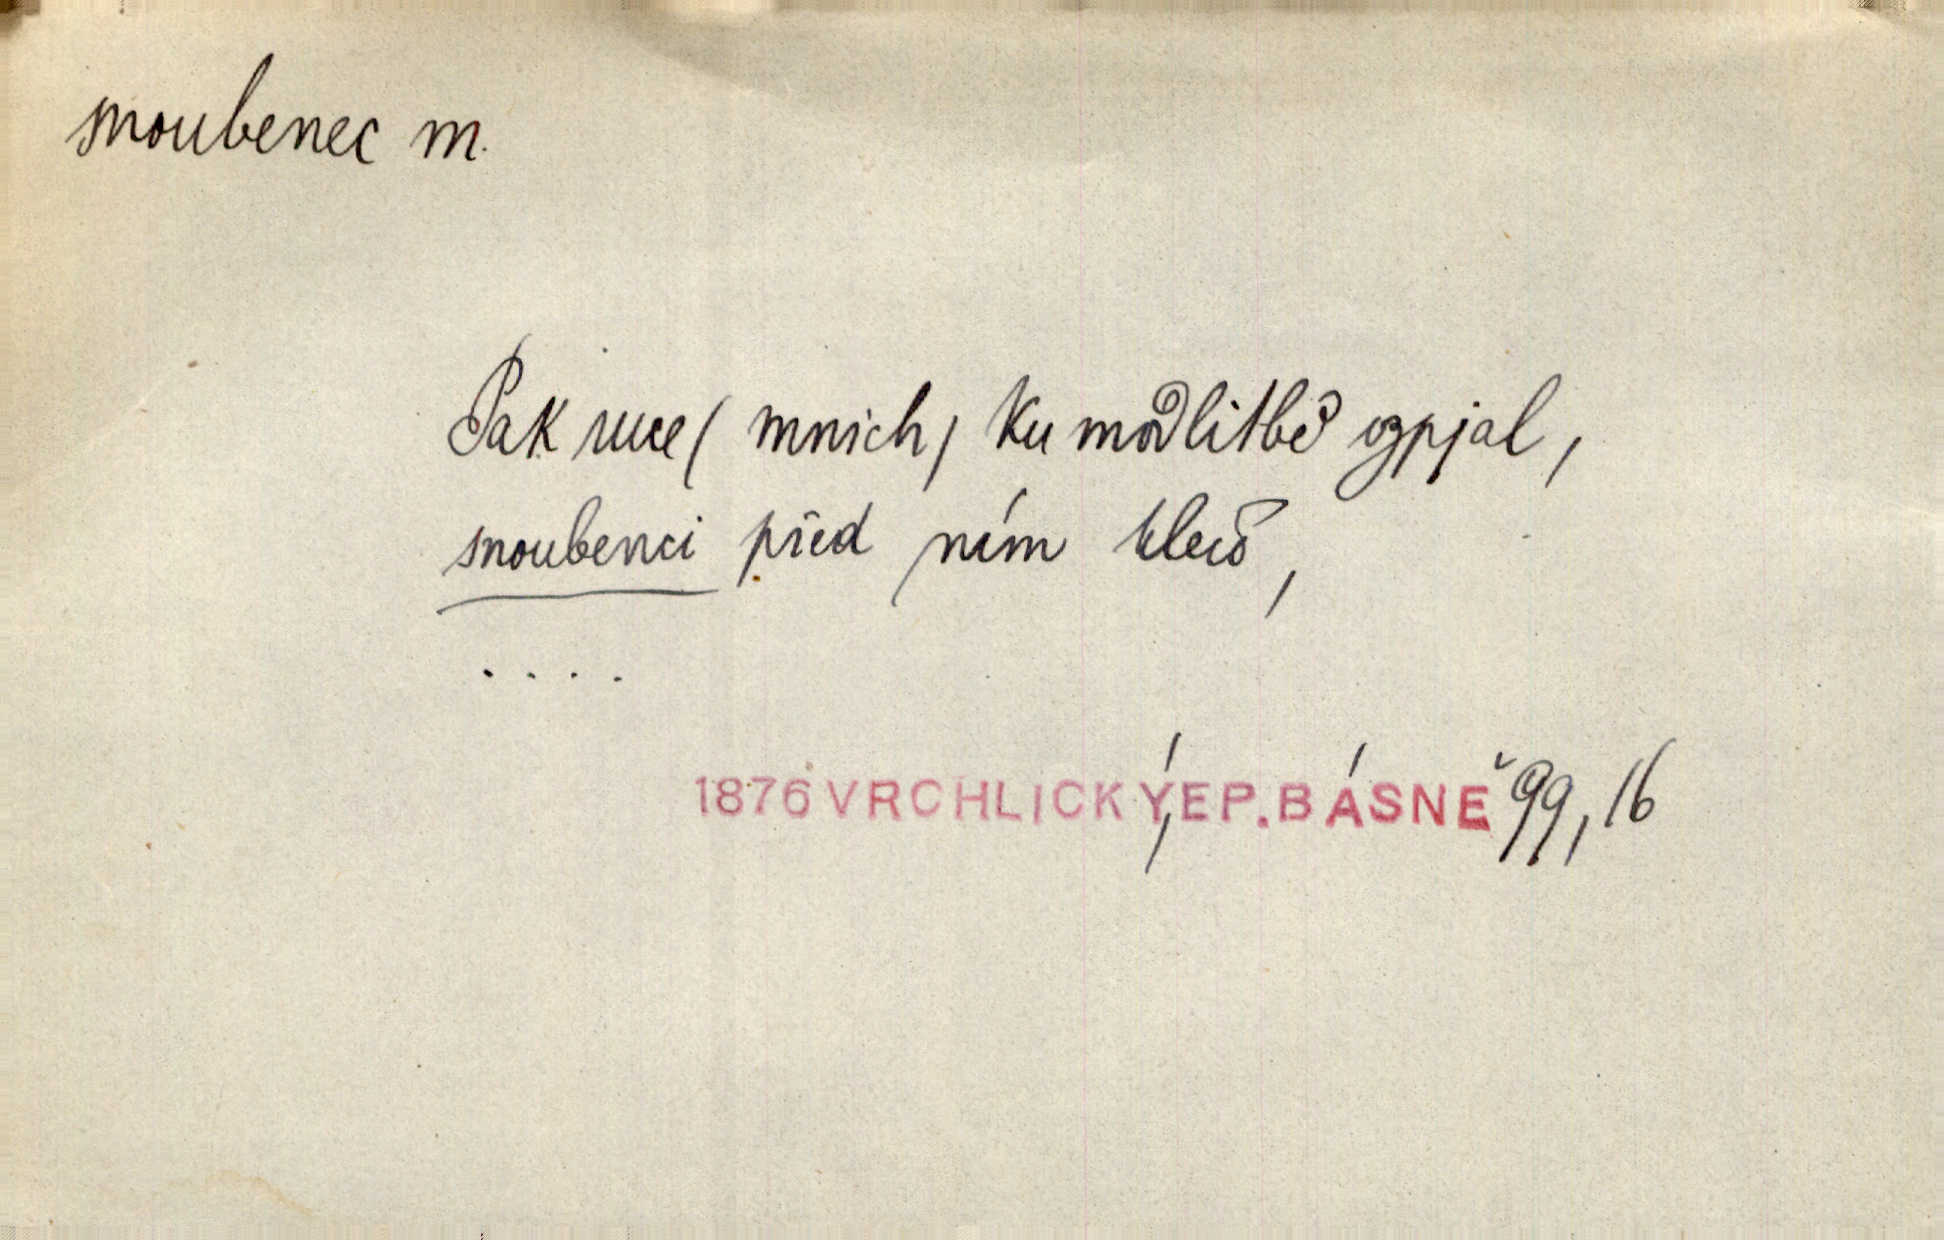 snoubenec m.
Pak ruce (mnich) ku modlitbě ozpjal,
snoubenci před ním klečí,
....
1876 VRCHLICKÝ, EP. BÁSNĚ 99, 16